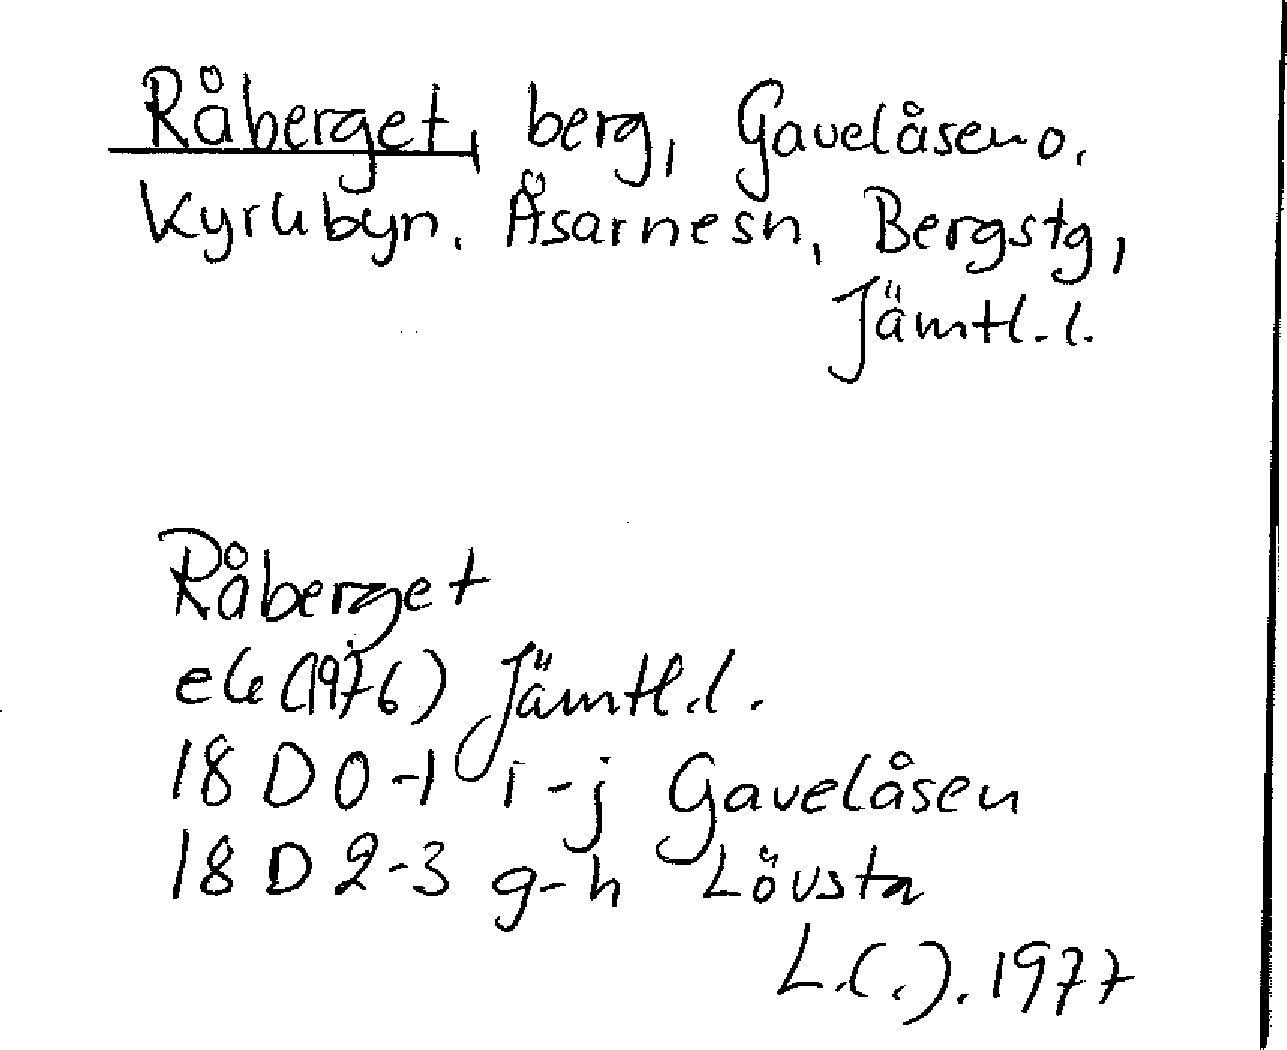 Råberget, berg, Gavelåsen o.
Kyrkbyn. Åsarnes sn, Bergs tg,
Jämtl. l.
Råberget
ek (1976) Jämtl. l.
18 D 0-1 i-j Gavelåsen
18 D 2-3 g-h Lövsta
1977